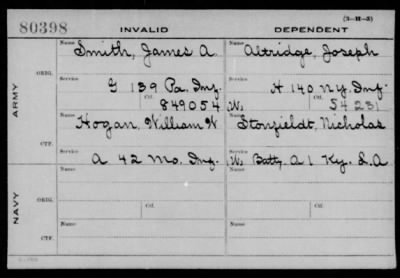 (3-H-3)
80398 INVALID DEPENDENT
Name Smith, James A Name Altridge, Joseph
ORIG.
Service G 139 Pa. Inf. Service H 140 N.Y. Inf.
ARMY
Ctf. 849054 W. Ctf. 54231
Name Hogan, William W Name Stonfieldt, Nicholas
CTF.
Service A 42 Mo. Inf. Service W. Batty. A 1 Ky. L.A
Name Name
ORIG.
NAVY
Ctf. Ctf.
Name Name
CTF.